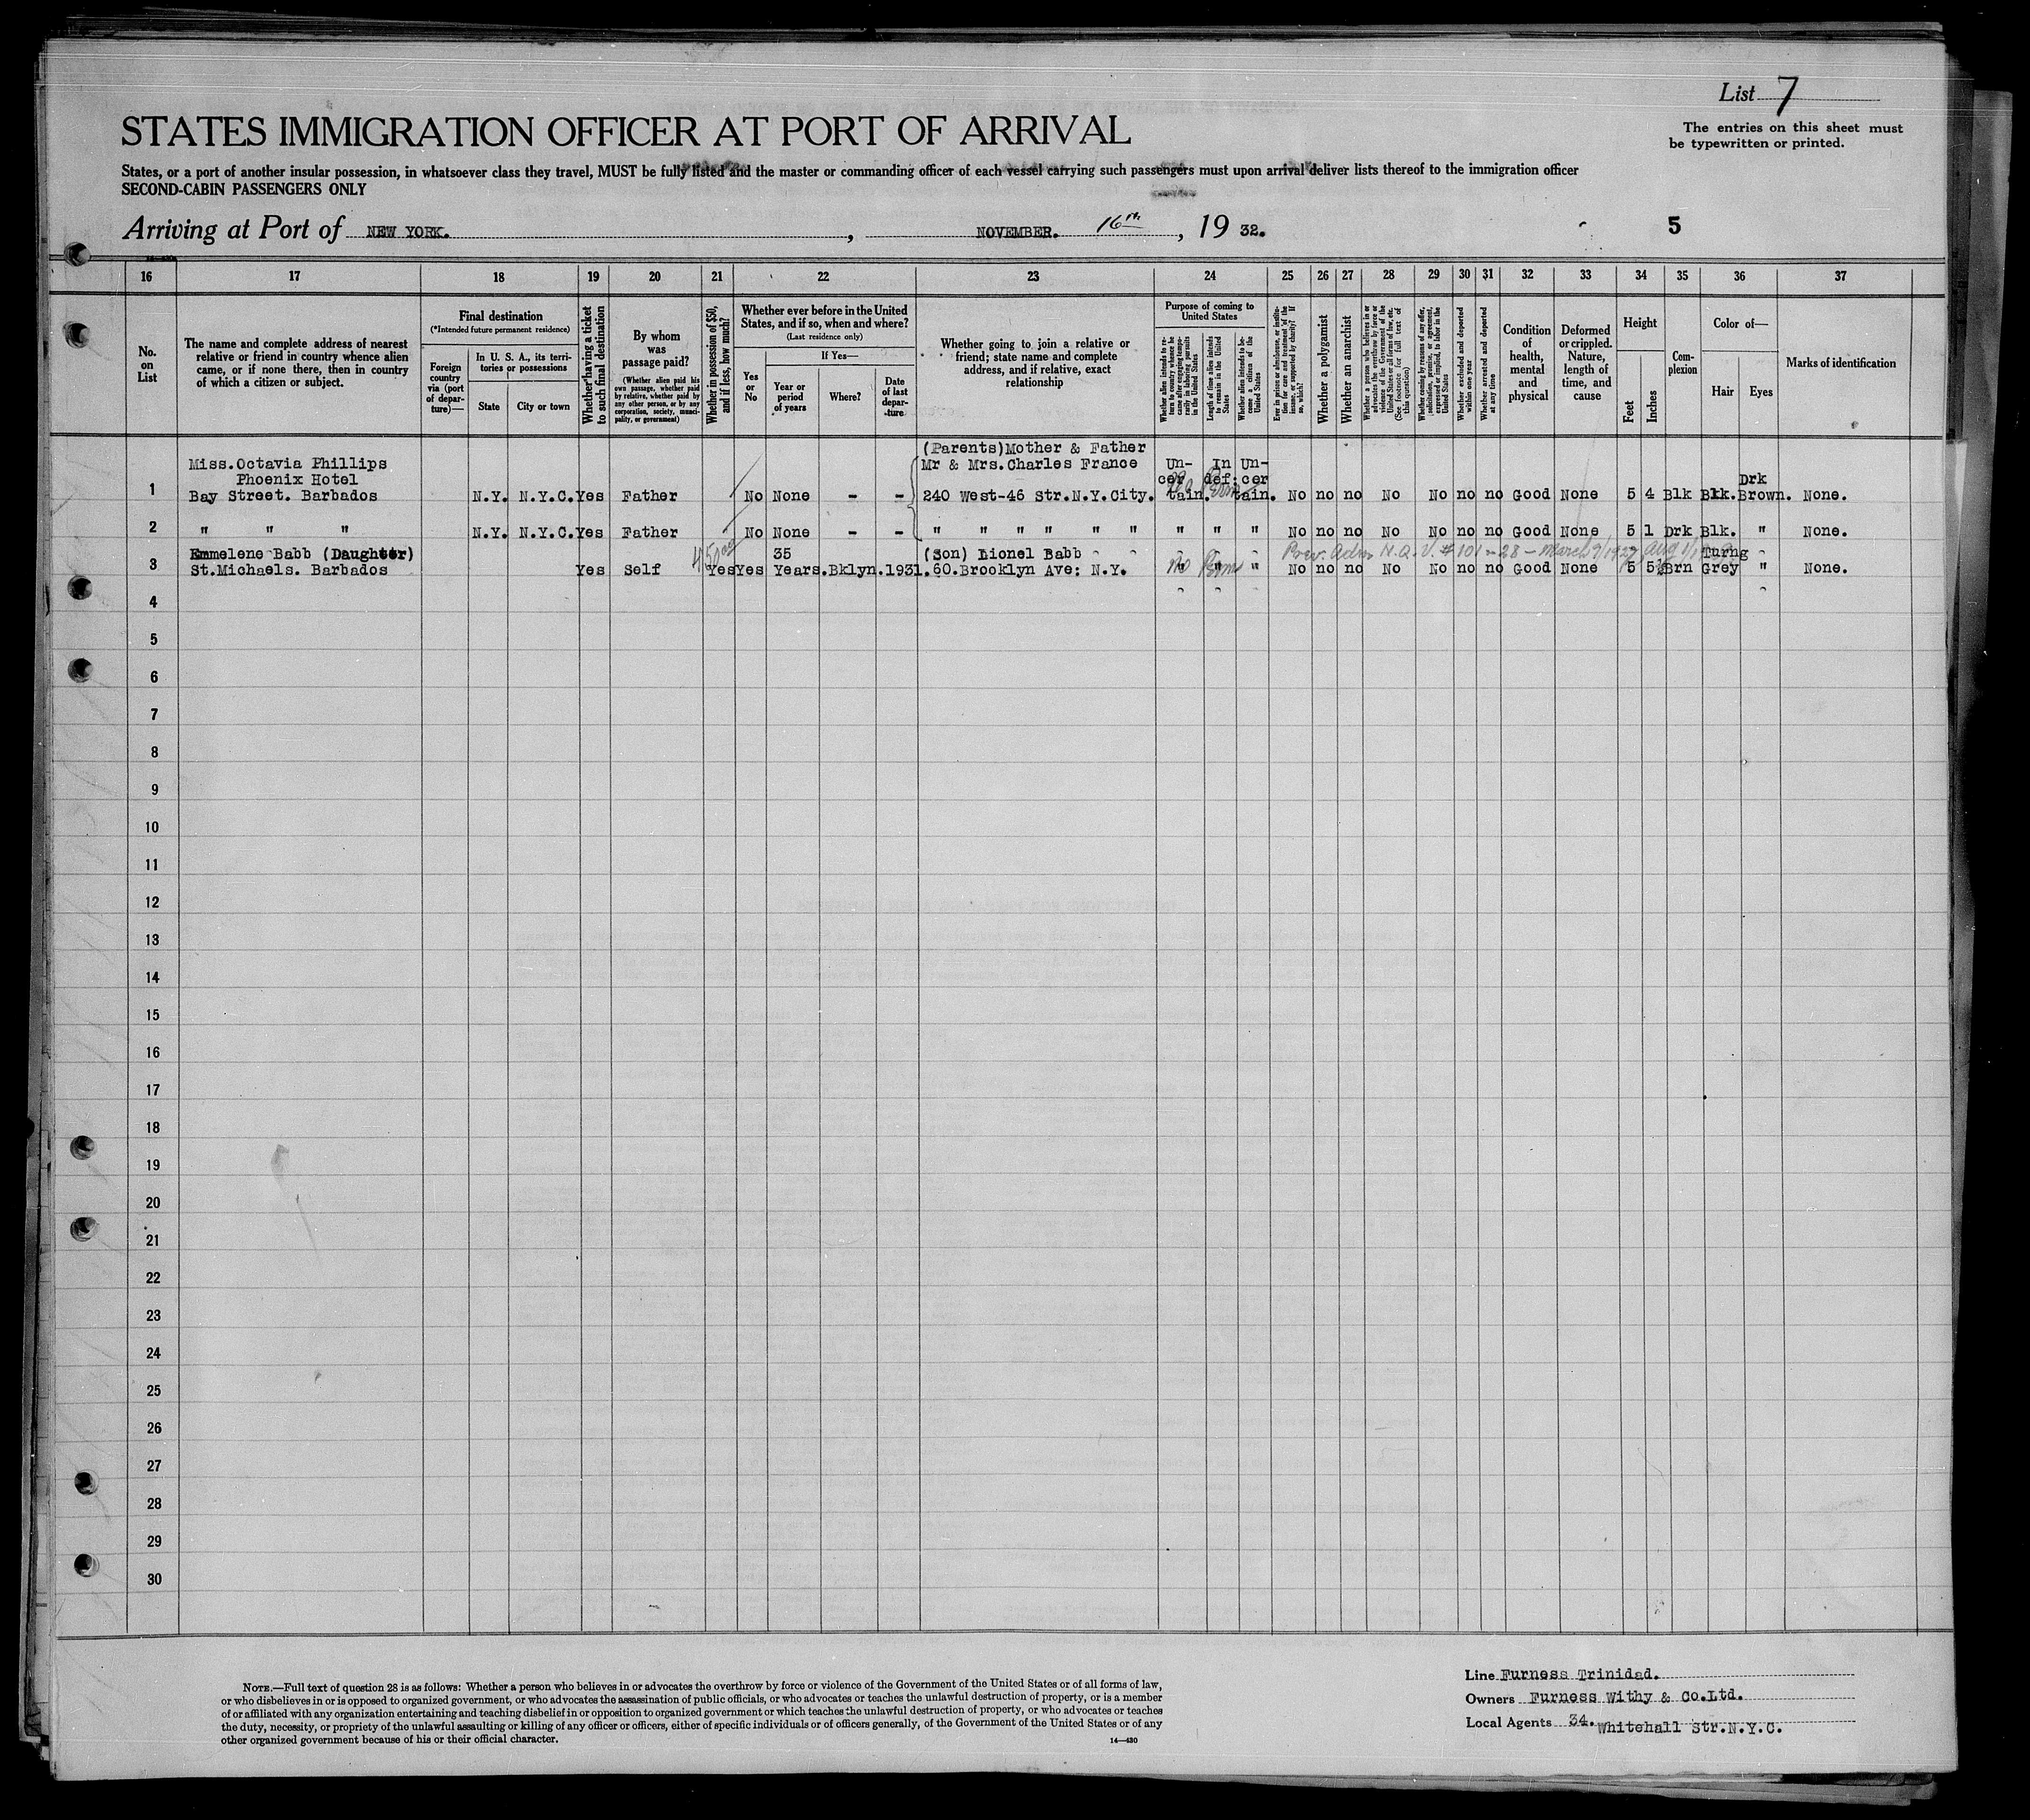 List 7
STATES IMMIGRATION OFFICER AT PORT OF ARRIVAL
The entries on this sheet must
be typewritten or printed.
States, or a port of another insular possession, in whatsoever class they travel, MUST be fully listed and the master or commanding officer of each vessel carrying such passengers must upon arrival deliver lists thereof to the immigration officer
SECOND-CABIN PASSENGERS ONLY
Arriving at Port of NEW YORK. , NOVEMBER. 16th , 19 32. 5
16 17 18 19 20 21 22 23 24 25 26 27 28 29 30 31 32 33 34 35 36 37
No.
on
List
The name and complete address of nearest
relative or friend in country whence alien
came, or if none there, then in country
of which a citizen or subject.
Final destination
(*Intended future permanent residence)
Foreign
country
via (port
of depar-
ture)—
In U. S. A., its terri-
tories or possessions
State
City or town
Whether having a ticket
to such final destination
By whom
was
passage paid?
(Whether alien paid his
own passage, whether paid
by relative, whether paid by
any other person, or by any
corporation, society, munici-
pality, or government)
Whether in possession of $50,
and if less, how much?
Whether ever before in the United
States, and if so, when and where?
(Last residence only)
Yes
or
No
If Yes—
Year or
period
of years
Where?
Date
of last
depar-
ture
Whether going to join a relative or
friend; state name and complete
address, and if relative, exact
relationship
Purpose of coming to
United States
Whether alien intends to re-
turn to country whence he
came after engaging tempo-
rarily in laboring pursuits
in the United States
Length of time alien intends
to remain in the United
States
Whether alien intends to be-
come a citizen of the
United States
Ever in prison or almshouse, or institu-
tion for care and treatment of the
insane, or supported by charity? If
so, which?
Whether a polygamist
Whether an anarchist
Whether a person who believes in or
advocates the overthrow by force or
violence of the Government of the
United States or all forms of law, etc.
(See footnote for full text of
this question)
Whether coming by reasons of any offer,
solicitation, promise, or agreement,
expressed or implied, to labor in the
United States
Whether excluded and deported
within one year
Whether arrested and deported
at any time
Condition
of
health,
mental
and
physical
Deformed
or crippled.
Nature,
length of
time, and
cause
Height
Feet
Inches
Com-
plexion
Color of—
Hair
Eyes
Marks of identification
(Parents)Mother & Father
Miss.Octavia Phillips Mr & Mrs.Charles France Un- In Un-
Phoenix Hotel cer def: cer Drk
1 Bay Street. Barbados N.Y. N.Y.C. Yes Father No None - - 240 West-46 Str.N.Y.City. tain. tain. No no no No No no no Good None 5 4 Blk Blk. Brown. None.
2 " " " N.Y. N.Y.C. Yes Father No None - - " " " " " " " " " No no no No No no no Good None 5 1 Drk Blk. " None.
Emmelene Babb (Daughter) 35 (Son) Lionel Babb Prev. Adm N.Q.V. # 101 - 28 - March 9/1927 Aug 1/ Turng
3 St.Michaels. Barbados Yes Self Yes Yes Years. Bklyn. 1931. 60.Brooklyn Ave: N.Y. no Perm " No no no No No no no Good None 5 5½ Brn Grey " None.
4
5
6
7
8
9
10
11
12
13
14
15
16
17
18
19
20
21
22
23
24
25
26
27
28
29
30
NOTE.—Full text of question 28 is as follows: Whether a person who believes in or advocates the overthrow by force or violence of the Government of the United States or of all forms of law,
or who disbelieves in or is opposed to organized government, or who advocates the assassination of public officials, or who advocates or teaches the unlawful destruction of property, or is a member
of or affiliated with any organization entertaining and teaching disbelief in or opposition to organized government or which teaches the unlawful destruction of property, or who advocates or teaches
the duty, necessity, or propriety of the unlawful assaulting or killing of any officer or officers, either of specific individuals or of officers generally, of the Government of the United States or of any
other organized government because of his or their official character.
14—430
Line Furness Trinidad.
Owners Furness Withy & Co.Ltd.
Local Agents 34. Whitehall Str.N.Y.C.